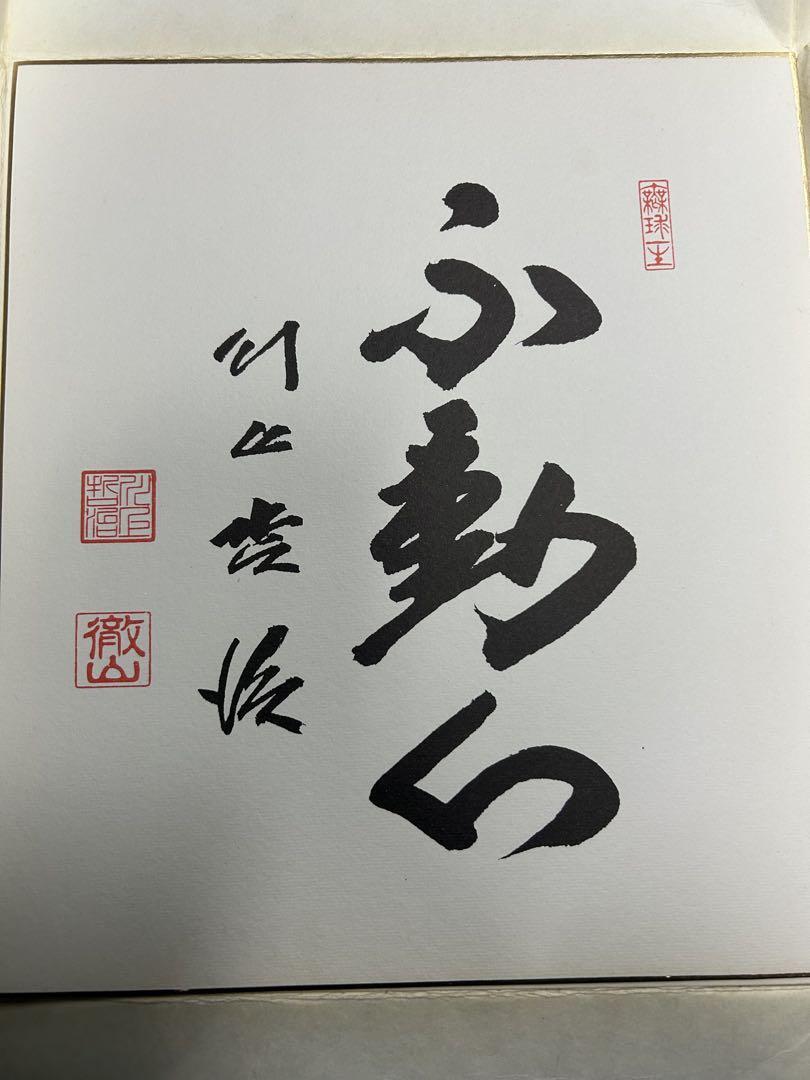 不動心
川上哲治
川上哲治
徹山